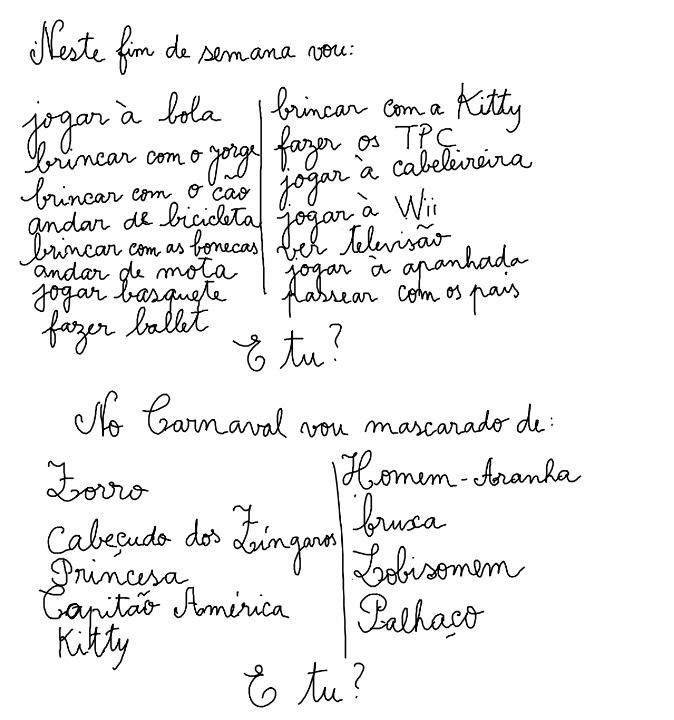 Neste fim de semana vou:
jogar à bola
brincar com o Jorge
brincar com o cão
andar de bicicleta
brincar com as bonecas
andar de mota
jogar basquete
fazer ballet
brincar com a Kitty
fazer os TPC
jogar à cabeleireira
jogar à Wii
ver televisão
jogar à apanhada
passear com os pais
E tu?
No Carnaval vou mascarado de:
Zorro
Cabeçudo dos Zíngaros
Princesa
Capitão América
Kitty
Homem-Aranha
bruxa
Lobisomem
Palhaço
E tu?